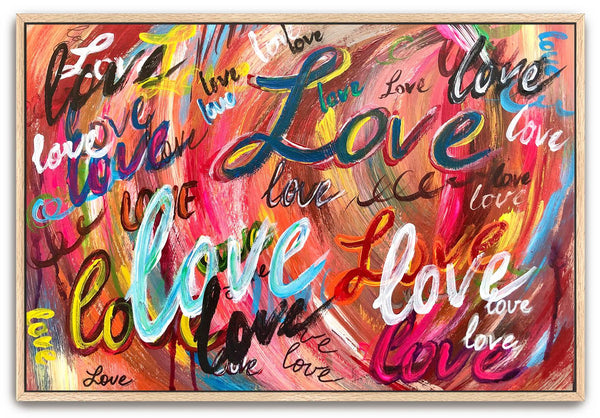 Love
love
love
love
love
love
Love
love
Love
love
love
love
love
love
love
love
Love
love
love
LOVE
love
love
love
love
Love
love
love
love
love
love
love
love
love
love
Love